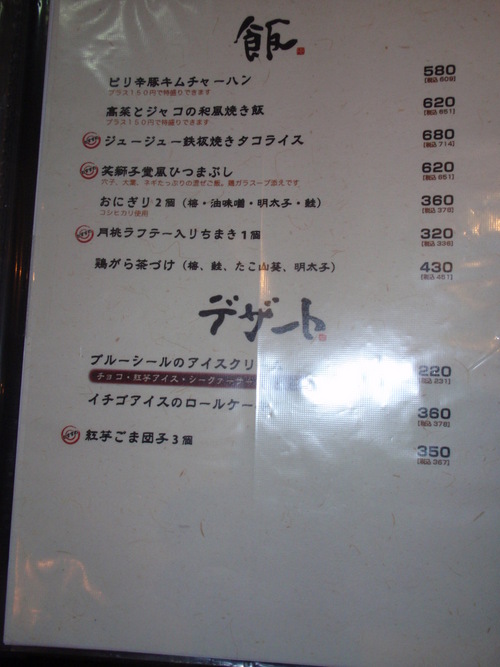 飯
ピリ辛豚キムチャーハン 580
プラス150円で特盛りできます [税込 609]
高菜とジャコの和風焼き飯 620
プラス150円で特盛りできます [税込 651]
ジュージュー鉄板焼きタコライス 680
[税込 714]
笑獅子堂風ひつまぶし 620
穴子、大葉、ネギたっぷりの混ぜご飯。鶏ガラスープ添えです [税込 651]
おにぎり2個（梅・油味噌・明太子・鮭） 360
コシヒカリ使用 [税込 378]
月桃ラフテー入りちまき1個 320
[税込 336]
鶏がら茶づけ（梅、鮭、たこ山葵、明太子） 430
[税込 451]
デザート
ブルーシールのアイスクリ 220
チョコ・紅芋アイス・シークァーサー [税込 231]
イチゴアイスのロールケー 360
[税込 378]
紅芋ごま団子3個 350
[税込 367]